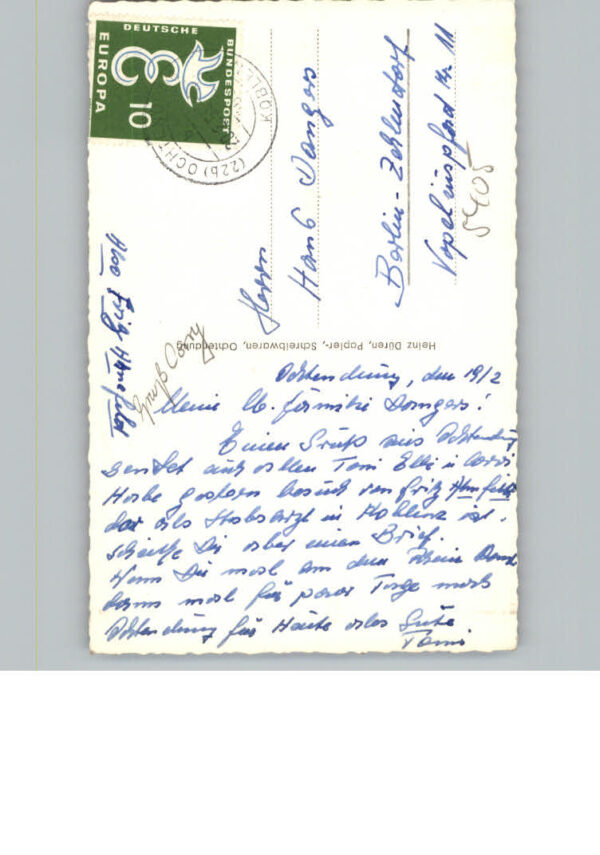 DEUTSCHE
BUNDESPOST
EUROPA
10
(22b) OCHT
KOBL
Herrn
Hans Dangers
Berlin-Zehlendorf
Nr. 11
5405
Also Fritz
Gruß
Heinz Düren, Papier-, Schreibwaren, Ochtendung
Ochtendung, den 19/2
Meine lb. Familie Dangers!
Einen Gruß aus Ochtendung
sendet Euch allen Toni Elli u.
Habe gestern besuch von Fritz
der als Stabsarzt in Koblenz ist.
Dir aber einen Brief.
Wenn Du mal am den Rhein
dann mal für paar Tage nach
Ochtendung für Heute alles Gute
Toni